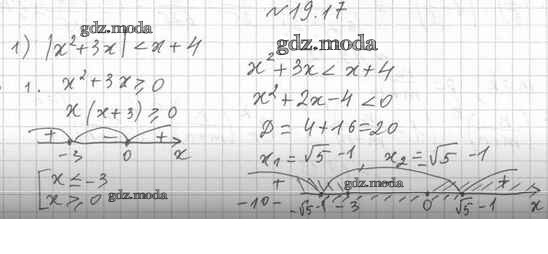 №19.17
1) |x²+3x| < x+4
gdz.moda
1. x²+3x ⩾ 0
x(x+3) ⩾ 0
+ − +
-3 0 x
[ x ≤ -3
x ⩾ 0
gdz.moda
gdz.moda
x²+3x < x+4
x²+2x-4 < 0
D = 4+16 = 20
x₁ = √5 -1 x₂ = -√5 -1
+ gdz.moda +
-√5-1 -3 0 √5-1 x
-10-